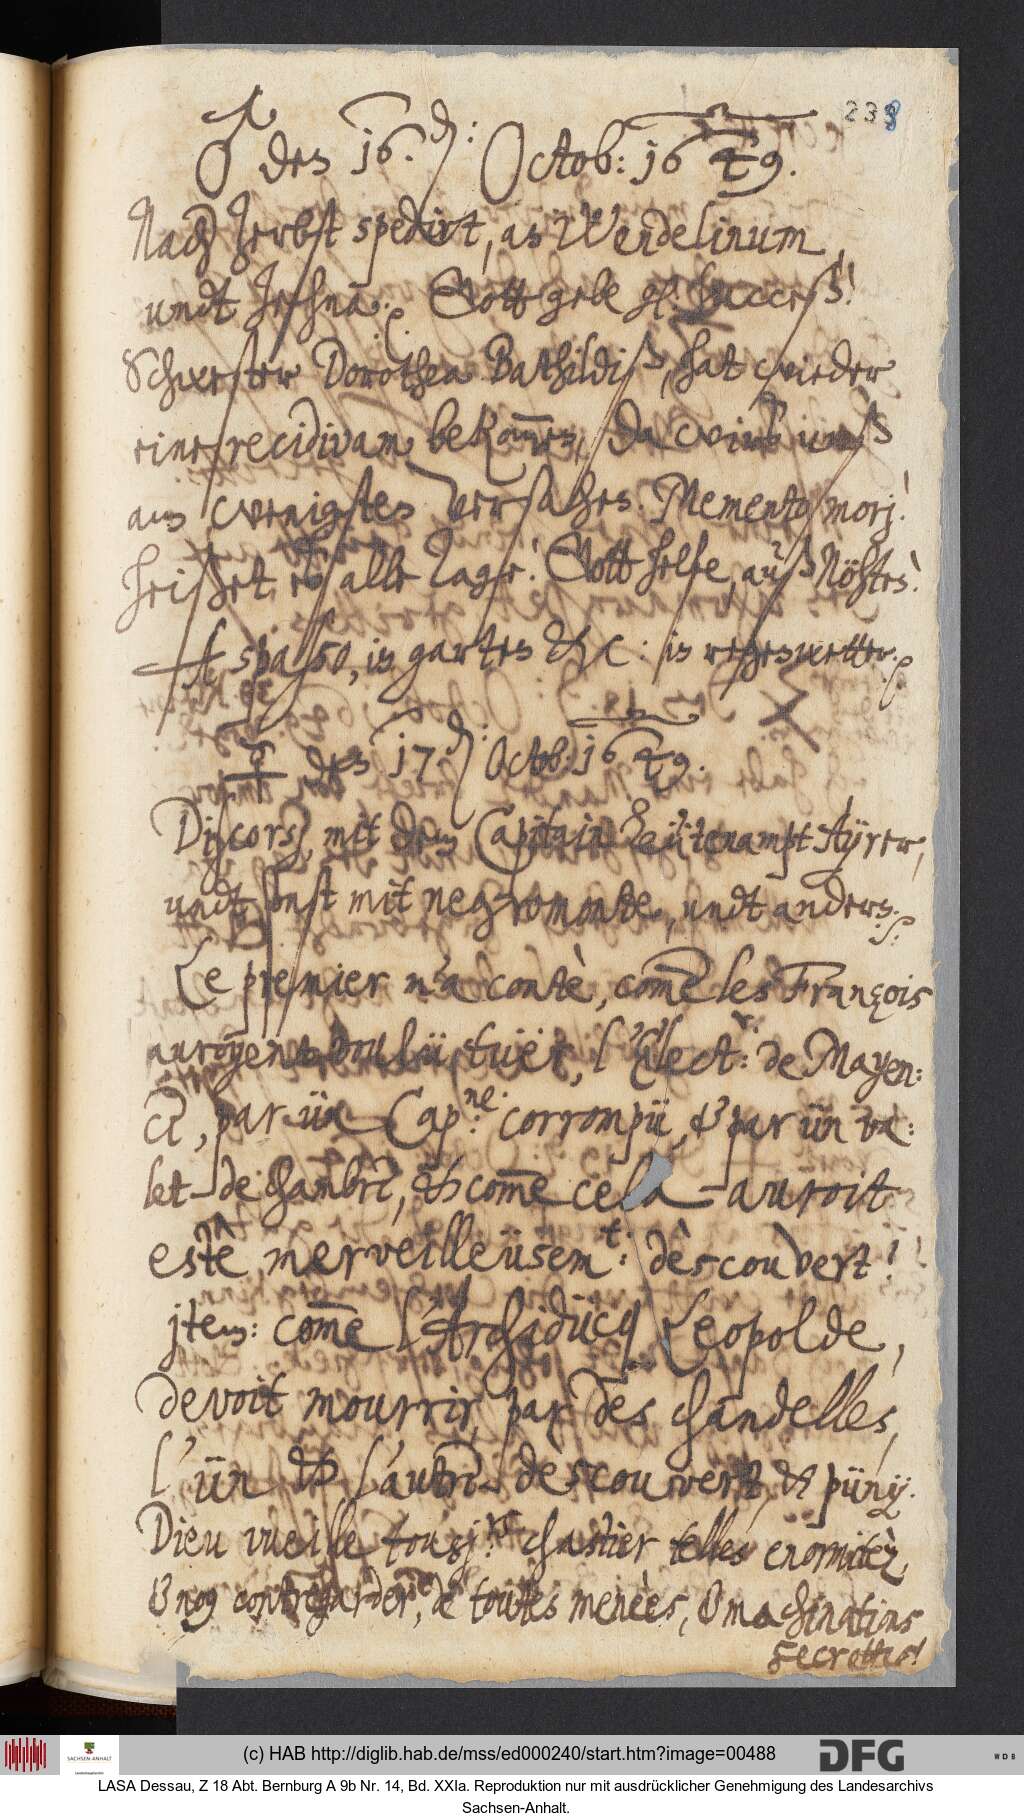 238
♂ den 16. Octob: 1649.
Nach Zerbst spedirt, an Wendelinum,
undt Jehna. Gott gebe succeß!
Schwester Dorothea Bathildiß, hat wieder
eine recidivam bekommen, da wirß unß
am wenigsten versahen. Memento morj!
heißet eß alle Tage! Gott helfe, auß Nöhten!
A spasso, in garten &c: in regenwetter.
☿ den 17. Octob: 1649.
Discorß, mit dem Capitain Leütenampt Aÿrer,
undt sonst mit negromonte, undt andern.
Le premier m'a contè, come les François
auroyent voulü tüer, l'Elect: de Mayen:
ce, par ün Cap:ne corrompü, & par ün va:
let-de chambre, & come cela auroit
estè merveilleüsem:t descouvert!
jtem: come l'Archidücq Leopolde,
devoit mourrir, par des chandelles,
l'ün & l'autre descouvert, & pünÿ.
Dieu vueille tousj:rs chastier telles enormitèz,
& nous contregarder, de toutes menèes, & machinations
secrettes!
(c) HAB http://diglib.hab.de/mss/ed000240/start.htm?image=00488
DFG
WDB
SACHSEN-ANHALT
LASA Dessau, Z 18 Abt. Bernburg A 9b Nr. 14, Bd. XXIa. Reproduktion nur mit ausdrücklicher Genehmigung des Landesarchivs
Sachsen-Anhalt.